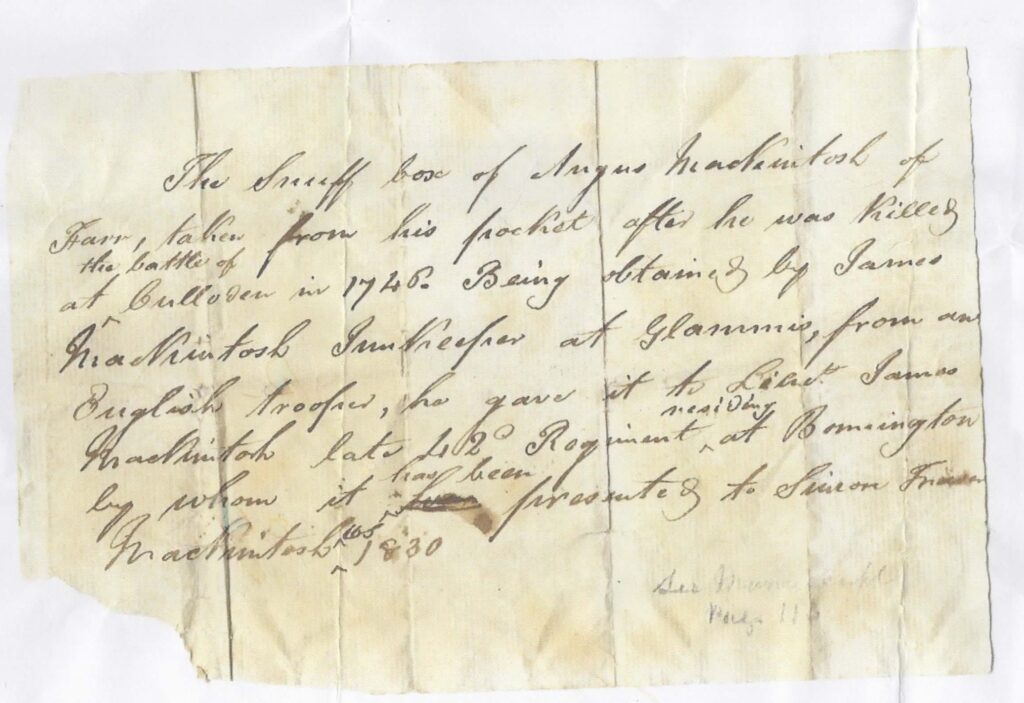 The Snuff box of Angus Mackintosh of
Farr, taken from his pocket after he was killed
at ^ the battle of Culloden in 1746. Being obtained by James
Mackintosh Innkeeper at Glammis, from an
English trooper, he gave it to Lieut. James
Mackintosh late 42d Regiment ^ residing at Bonnington
by whom it ^ has been presented to Simon Fraser
Mackintosh ^ WS 1830
See
Page 11